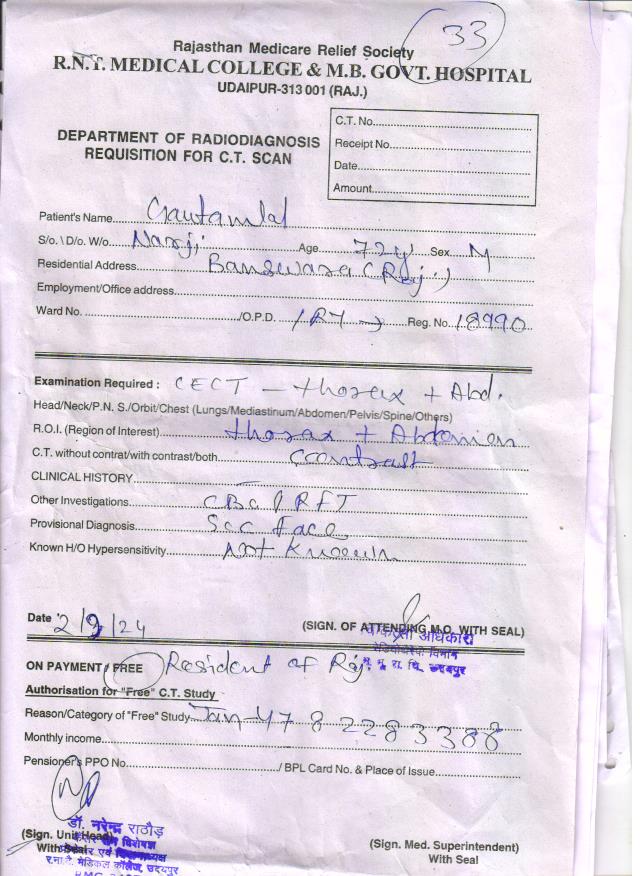 33
Rajasthan Medicare Relief Society
R.N.T. MEDICAL COLLEGE & M.B. GOVT. HOSPITAL
UDAIPUR-313 001 (RAJ.)
DEPARTMENT OF RADIODIAGNOSIS
REQUISITION FOR C.T. SCAN
C.T. No.
Receipt No.
Date
Amount
Patient's Name Gautamlal
S/o. \ D/o. W/o Narji Age 72y Sex M
Residential Address Banswara (Raj.)
Employment/Office address
Ward No. /O.P.D. / RT → Reg. No. 18990
Examination Required : CECT - thorax + Abd.
Head/Neck/P.N. S./Orbit/Chest (Lungs/Mediastinum/Abdomen/Pelvis/Spine/Others)
R.O.I. (Region of Interest) thorax + Abdomen
C.T. without contrat/with contrast/both contrast
CLINICAL HISTORY —
Other Investigations CBC / RFT
Provisional Diagnosis Scc Face
Known H/O Hypersensitivity Not Known
Date 2/9/24 (SIGN. OF ATTENDING M.O. WITH SEAL)
चिकित्सा अधिकारी
रेडियोथैरेपी विभाग
म. भू. रा. चि. उदयपुर
ON PAYMENT / FREE Resident of Raj.
Authorisation for "Free" C.T. Study
Reason/Category of "Free" Study Jan-47 82283388
Monthly income
Pensioner's PPO No. / BPL Card No. & Place of Issue
डॉ. नरेन्द्र राठौड़
(Sign. Unit Head) (Sign. Med. Superintendent)
With Seal With Seal
र.ना.टै. मेडिकल कॉलेज, उदयपुर